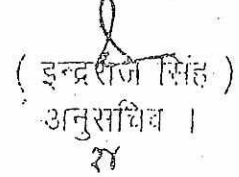 ( इन्द्रराज सिंह )
अनुसचिव ।